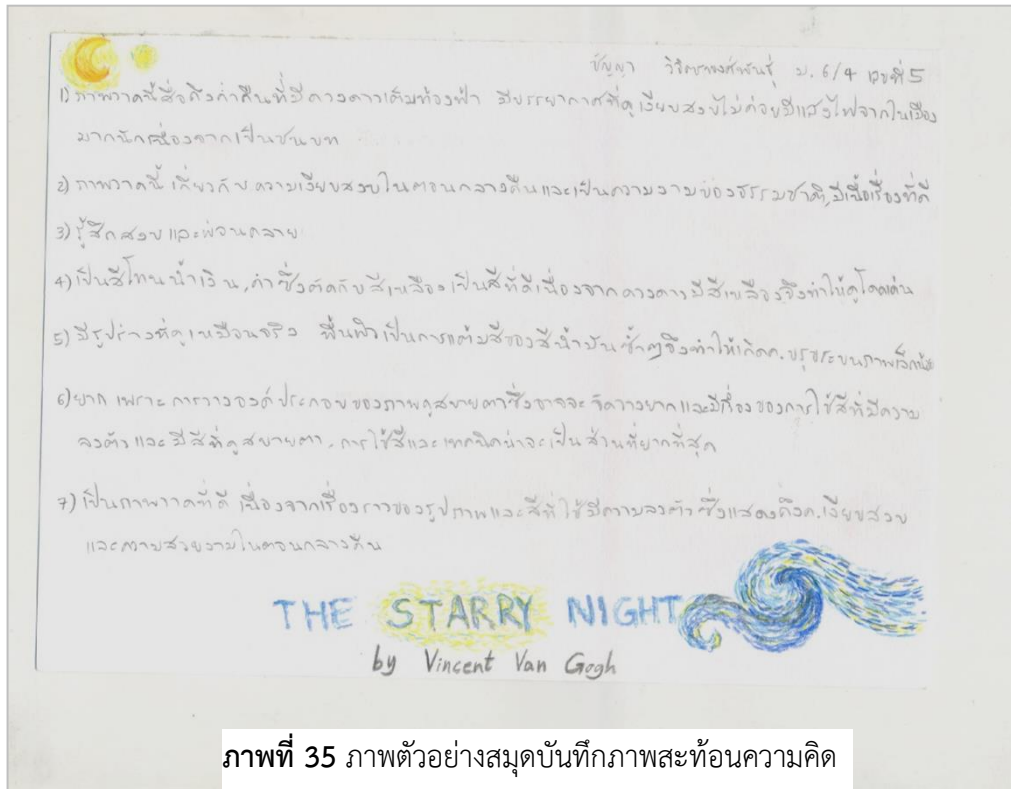 ชัญญา วิจิตรพงศ์พันธุ์ ม. 6/4 เลขที่ 5
1) ภาพวาดนี้สื่อถึงค่ำคืนที่มีดวงดาวเต็มท้องฟ้า มีบรรยากาศที่ดูเงียบสงบไม่ค่อยมีแสงไฟจากในเมือง
มากนักเนื่องจากเป็นชนบท
2) ภาพวาดนี้ เกี่ยวกับ ความเงียบสงบในตอนกลางคืนและเป็นความงามของธรรมชาติ, มีเนื้อเรื่องที่ดี
3) รู้สึกสงบ และผ่อนคลาย
4) เป็นสีโทนน้ำเงิน, ดำ ซึ่งตัดกับสีเหลือง เป็นสีที่ดีเนื่องจากดวงดาวมีสีเหลืองจึงทำให้ดูโดดเด่น
5) มีรูปร่างที่ดูเหมือนจริง พื้นผิวเป็นการแต้มสีของสีน้ำมันซ้ำๆจึงทำให้เกิดค.ขรุขระบนภาพเล็กน้อย
6) ยาก เพราะ การวางองค์ประกอบของภาพดูสบายตาซึ่งอาจจะจัดวางยากและมีเรื่องของการใช้สีที่มีความ
ลงตัว และ มีสีที่ดูสบายตา, การใช้สีและเทคนิคน่าจะเป็นส่วนที่ยากที่สุด
7) เป็นภาพวาดที่ดี เนื่องจากเรื่องราวของรูปภาพและสีที่ใช้มีความลงตัวซึ่งแสดงถึงค.เงียบสงบ
และความสวยงามในตอนกลางคืน
THE STARRY NIGHT
by Vincent Van Gogh
ภาพที่ 35 ภาพตัวอย่างสมุดบันทึกภาพสะท้อนความคิด